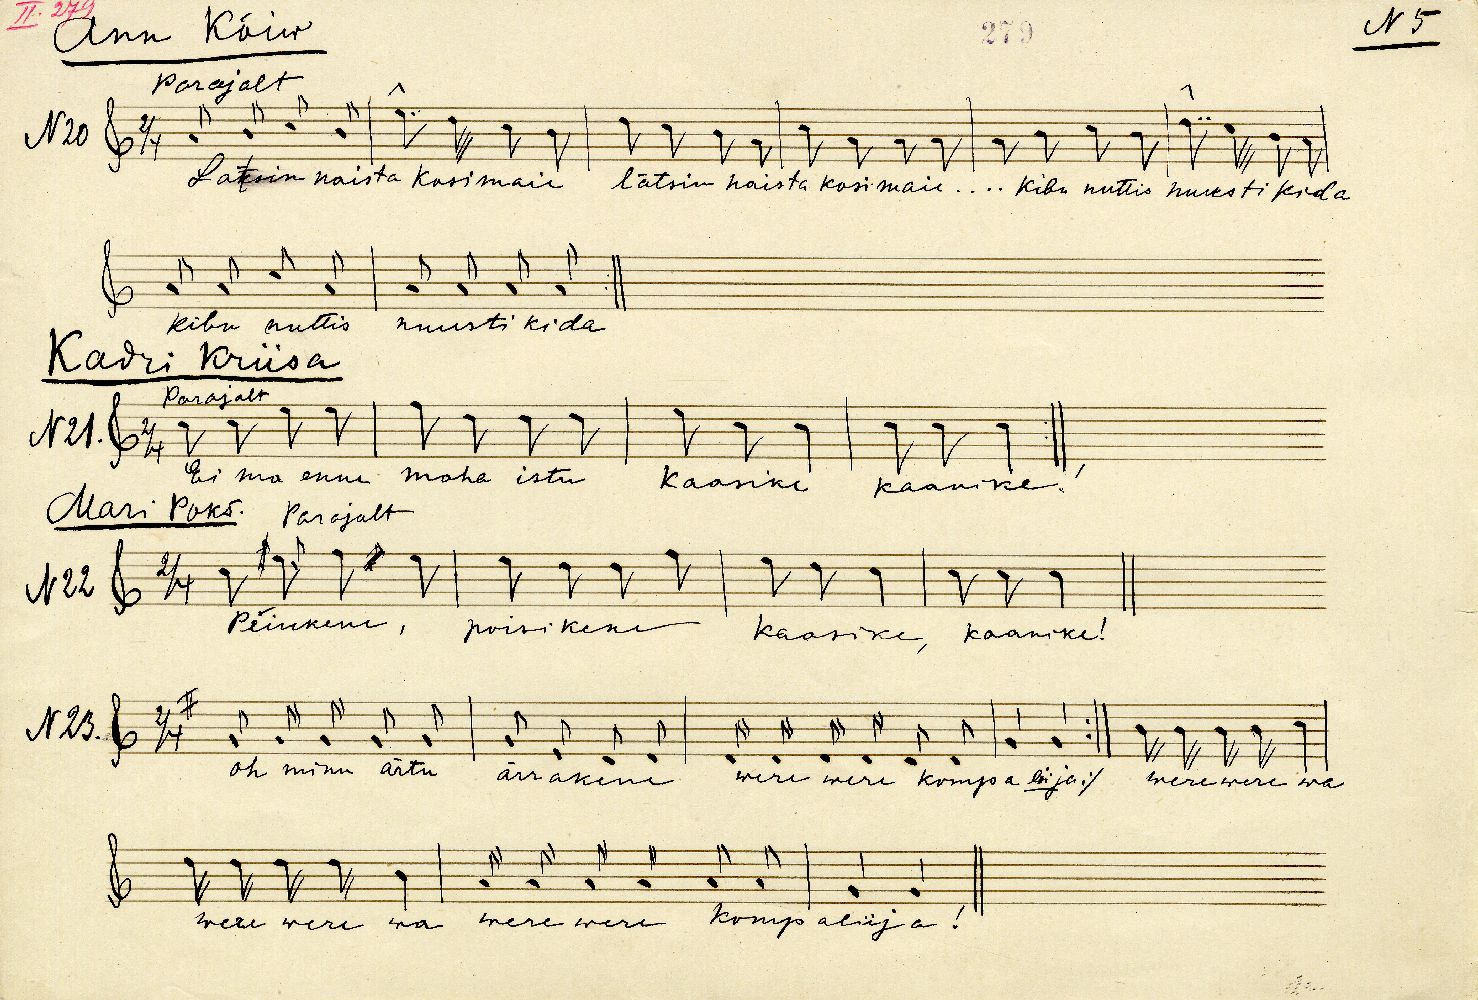 II. 279
Ann Kõiw 279 N 5
Parajalt
N 20 2/4
Latsin naista kosimaie lätsin naista kosimaie.... kibu nuttis nuusti kida
kibu nuttis nuusti kida
Kadri Kriisa
Parajalt
N 21. 2/4
Ei ma enne maha istu kaasike kaanike!
Mari Poks. Parajalt
N 22 2/4
Peiukene, poisikene kaasike, kaanike!
N 23. 2/4
oh minu ärtu ärrakene were were kompa lüja :/ were were wa
were were wa were were kompalüja!